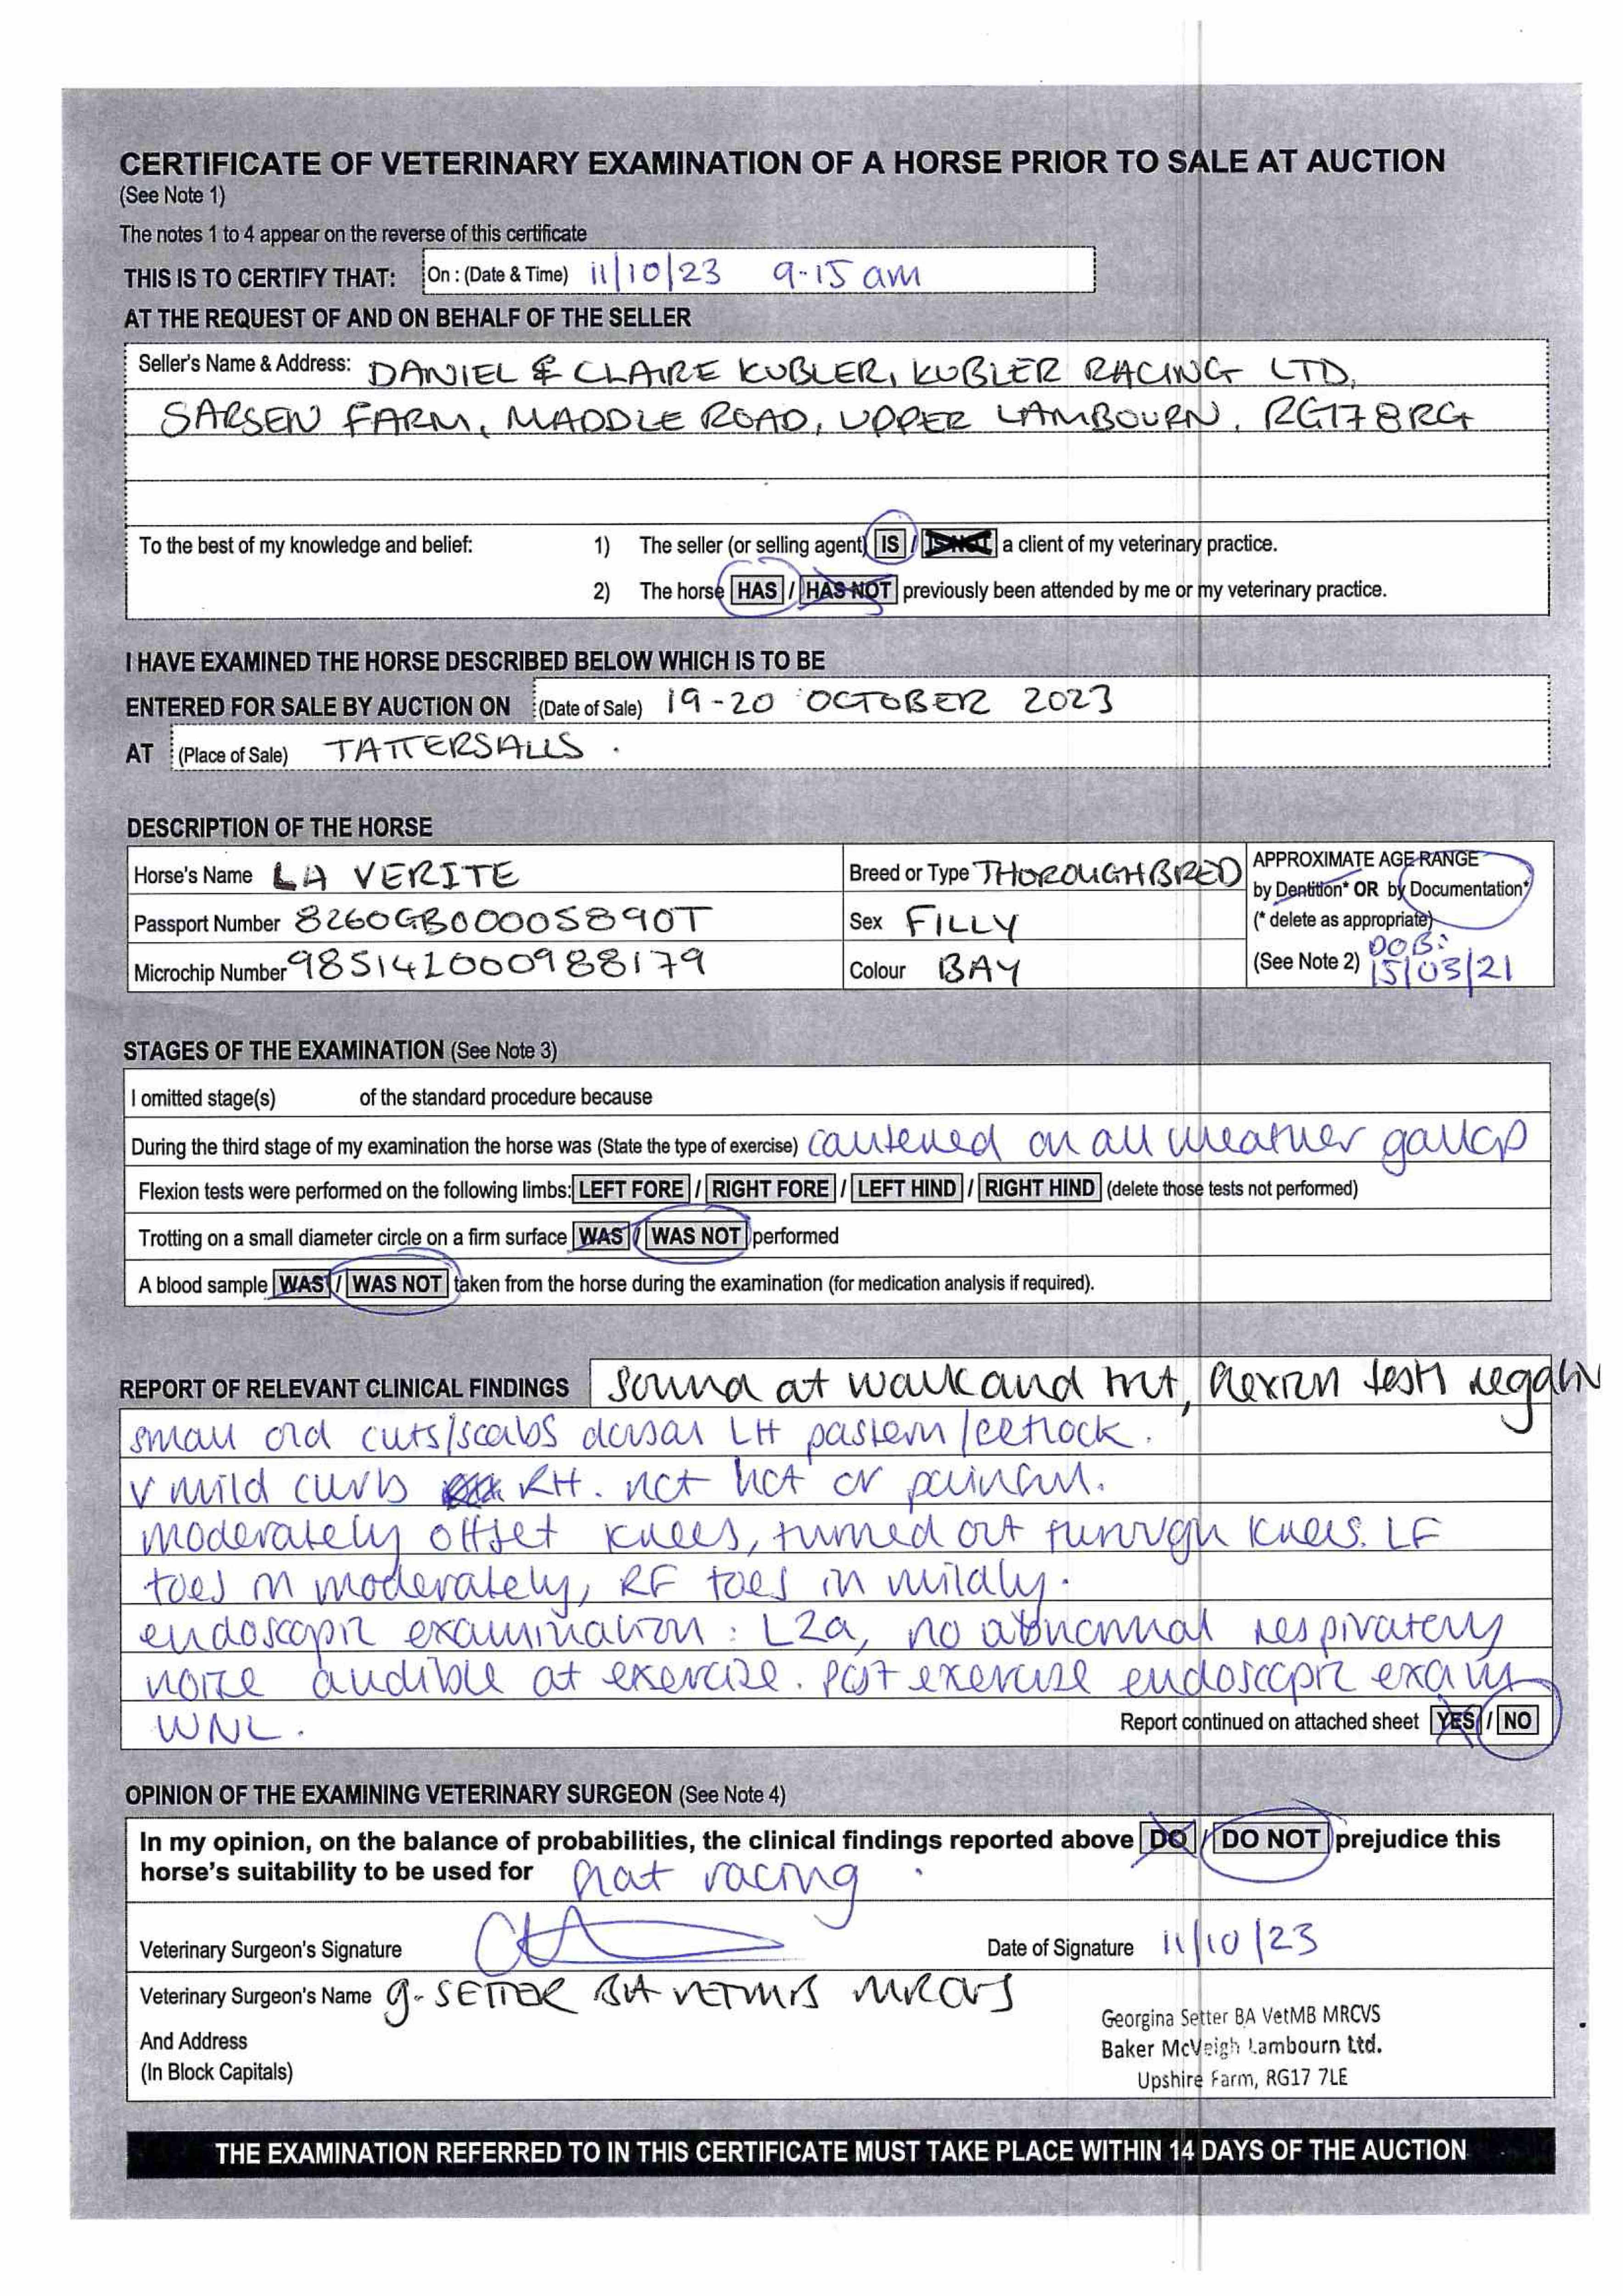 CERTIFICATE OF VETERINARY EXAMINATION OF A HORSE PRIOR TO SALE AT AUCTION
(See Note 1)
The notes 1 to 4 appear on the reverse of this certificate
THIS IS TO CERTIFY THAT: On : (Date & Time) 11/10/23 9-15 am
AT THE REQUEST OF AND ON BEHALF OF THE SELLER
Seller's Name & Address: DANIEL & CLAIRE KUBLER, KUBLER RACING LTD,
SARSEN FARM, MADDLE ROAD, UPPER LAMBOURN, RG17 8RG
To the best of my knowledge and belief: 1) The seller (or selling agent) IS / IS NOT a client of my veterinary practice.
2) The horse HAS / HAS NOT previously been attended by me or my veterinary practice.
I HAVE EXAMINED THE HORSE DESCRIBED BELOW WHICH IS TO BE
ENTERED FOR SALE BY AUCTION ON (Date of Sale) 19-20 OCTOBER 2023
AT (Place of Sale) TATTERSALLS .
DESCRIPTION OF THE HORSE
Horse's Name LA VERITE Breed or Type THOROUGHBRED APPROXIMATE AGE RANGE
by Dentition* OR by Documentation*
Passport Number 8260GB00005890T Sex FILLY (* delete as appropriate)
Microchip Number 985141000988179 Colour BAY (See Note 2) DOB: 15/03/21
STAGES OF THE EXAMINATION (See Note 3)
I omitted stage(s) of the standard procedure because
During the third stage of my examination the horse was (State the type of exercise) cantered on all weather gallop
Flexion tests were performed on the following limbs: LEFT FORE / RIGHT FORE / LEFT HIND / RIGHT HIND (delete those tests not performed)
Trotting on a small diameter circle on a firm surface WAS / WAS NOT performed
A blood sample WAS / WAS NOT taken from the horse during the examination (for medication analysis if required).
REPORT OF RELEVANT CLINICAL FINDINGS Sound at walk and trot, flexion tests negativ
small old cuts/scabs dorsal LH pastern/fetlock.
v mild curb RH. not hot or painful.
moderately offset knees, turned out through knees. LF
toes in moderately, RF toes in mildly.
endoscopic examination: L2a, no abnormal respiratory
noise audible at exercise. Post exercise endoscopic exam
WNL. Report continued on attached sheet YES / NO
OPINION OF THE EXAMINING VETERINARY SURGEON (See Note 4)
In my opinion, on the balance of probabilities, the clinical findings reported above DO / DO NOT prejudice this
horse's suitability to be used for flat racing.
Veterinary Surgeon's Signature Date of Signature 11/10/23
Veterinary Surgeon's Name G. SETTER BA VETMB MRCVS
And Address
(In Block Capitals)
Georgina Setter BA VetMB MRCVS
Baker McVeigh Lambourn Ltd.
Upshire Farm, RG17 7LE
THE EXAMINATION REFERRED TO IN THIS CERTIFICATE MUST TAKE PLACE WITHIN 14 DAYS OF THE AUCTION